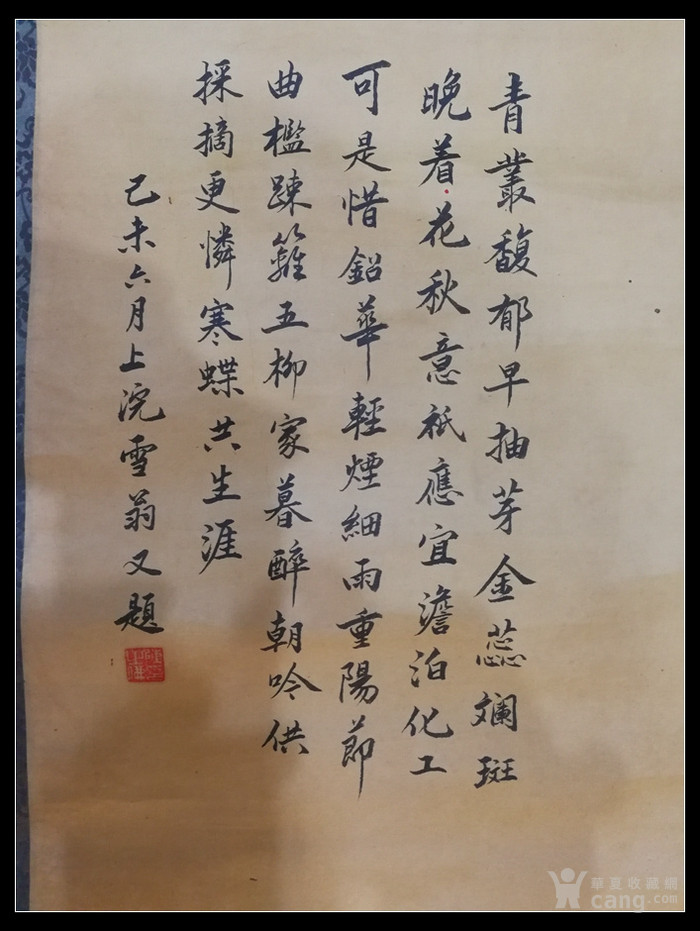 青叢馥郁早抽芽金蕊斕斑
晚着花秋意祇應宜澹泊化工
可是惜鉛華輕煙細雨重陽節
曲檻踈籬五柳家暮醉朝吟供
採摘更憐寒蝶共生涯
己未六月上浣雪翁又題
華夏收藏網
cang.com